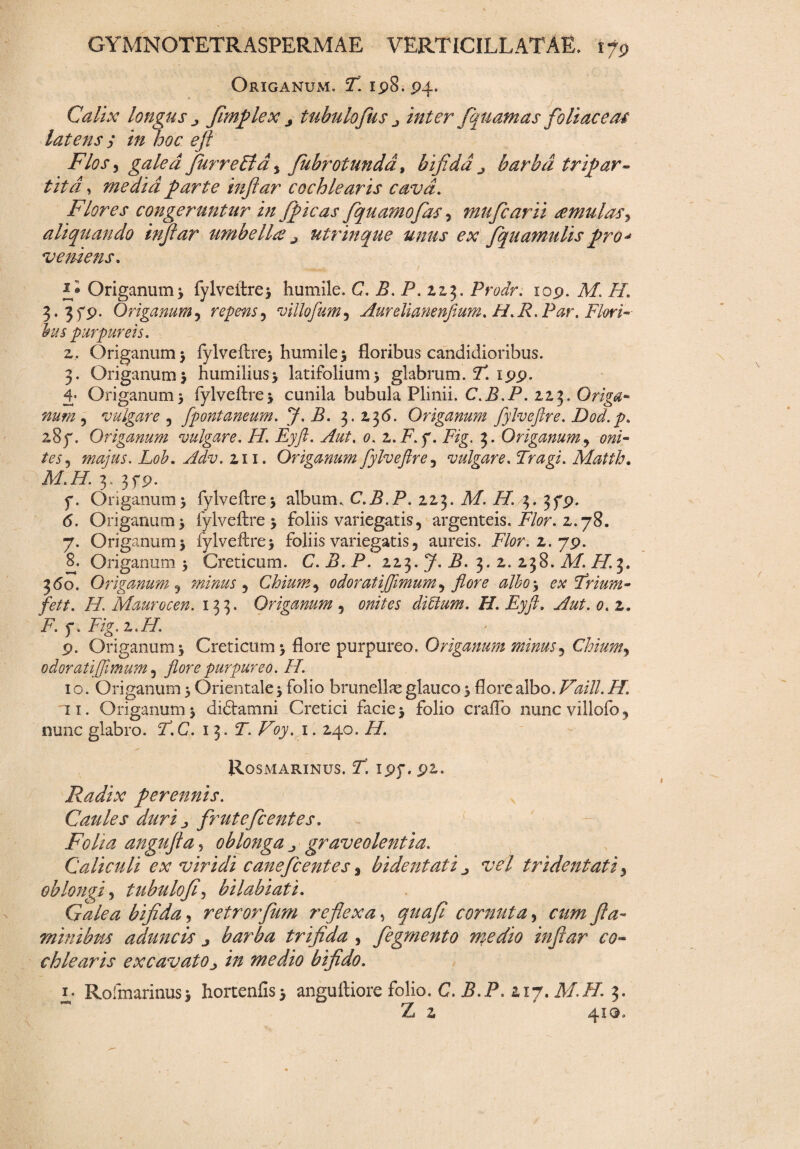 GYMNOTETRASPERMAE VERTICILLATAE. 179
ORIGANUM. T. 198. 94.
Calix longus, ſimplex, tubuloſus, inter ſquamas foliaceas
latens; in hoc eſt
Flos, galeâ ſurrectâ, ſubrotundâ, bifidâ, barbâ tripar-
titâ, mediâ parte inſtar cochlearis cavâ.
Flores congeruntur in ſpicas ſquamoſas, muſcarii æmulas,
aliquando inſtar umbellæ, utrinque unus ex ſquamulis pro-
veniens.
1. Origanum; ſylveſtre; humile. C. B. P. 223. Prodr. 109. M. H.
3. 359. Origanum, repens, villoſum, Aurelianenſium. H. R. Par. Flori-
bus purpureis.
2. Origanum; ſylveſtre; humile; floribus candidioribus.
3. Origanum; humilius; latifolium; glabrum. T. 199.
4. Origanum; ſylveſtre; cunila bubula Plinii. C. B. P. 223. Origa-
num, vulgare, ſpontaneum. J. B. 3. 236. Origanum ſylveſtre. Dod. p.
285. Origanum vulgare. H. Eyſt. Aut. o. 2. F. 5. Fig. 3. Origanum, oni-
tes, majus. Lob. Adv. 211. Origanum ſylveſtre, vulgare. Tragi. Matth.
M. H. 3. 359.
5. Origanum; ſylveſtre; album. C. B. P. 223. M. H. 3. 359.
6. Origanum; ſylveſtre; foliis variegatis, argenteis. Flor. 2. 78.
7. Origanum; ſylveſtre; foliis variegatis, aureis. Flor. 2. 79.
8. Origanum; Creticum. C. B. P. 223. J. B. 3. 2. 238. M. H. 3.
360. Origanum, minus, Chium, odoratiſſimum, flore albo; ex Trium-
fett. H. Maurocen. 133. Origanum, onites dictum. H. Eyſt. Aut. o. 2.
F. 5. Fig. 2. H.
9. Origanum; Creticum; flore purpureo. Origanum minus, Chium,
odoratiſſimum, flore purpureo. H.
10. Origanum; Orientale; folio brunellæ glauco; flore albo. Vaill. H.
11. Origanum; dictamni Cretici facie; folio craſſo nunc villoſo,
nunc glabro. T. C. 13. T. Voy. 1. 240. H.
ROSMARINUS. T. 195. 92.
Radix perennis.
Caules duri, fruteſcentes.
Folia anguſta, oblonga, graveolentia.
Caliculi ex viridi caneſcentes, bidentati, vel tridentati,
oblongi, tubuloſi, bilabiati.
Galea bifida, retrorſum reflexa, quaſi cornuta, cum ſta-
minibus aduncis, barba trifida, ſegmento medio inſtar co-
chlearis excavato, in medio bifido.
1. Roſmarinus; hortenſis; anguſtiore folio. C. B. P. 217. M. H. 3.
Z 2 410.